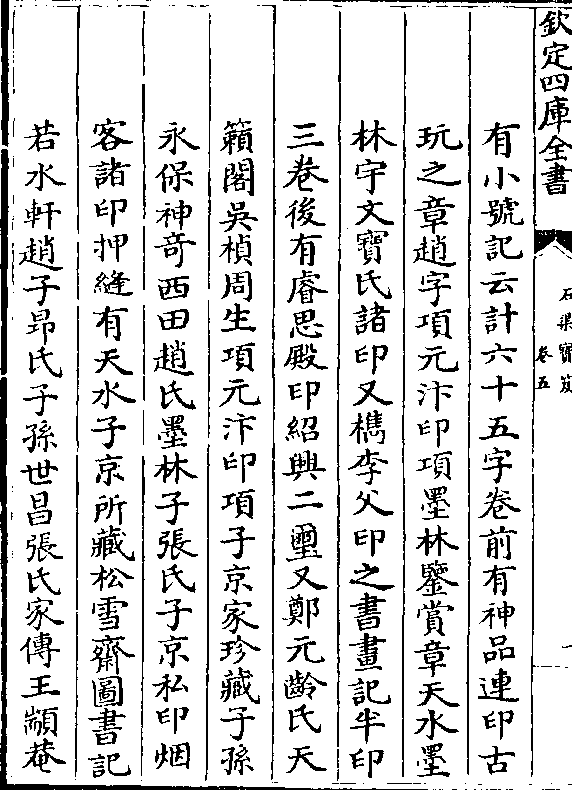 欽定四庫全書
石渠寶笈
卷五
一
有小號記云計六十五字卷前有神品連印古
玩之章趙字項元汴印項墨林鑒賞章天水墨
林宇文寶氏諸印又檇李父印之書畫記半印
三卷後有睿思殿印紹興二璽又鄭元齡氏天
籟閣吳楨周生項元汴印項子京家珍藏子孫
永保神奇西田趙氏墨林子張氏子京私印烟
客諸印押縫有天水子京所藏松雪齋圖書記
若水軒趙子昂氏子孫世昌張氏家傳王顓菴